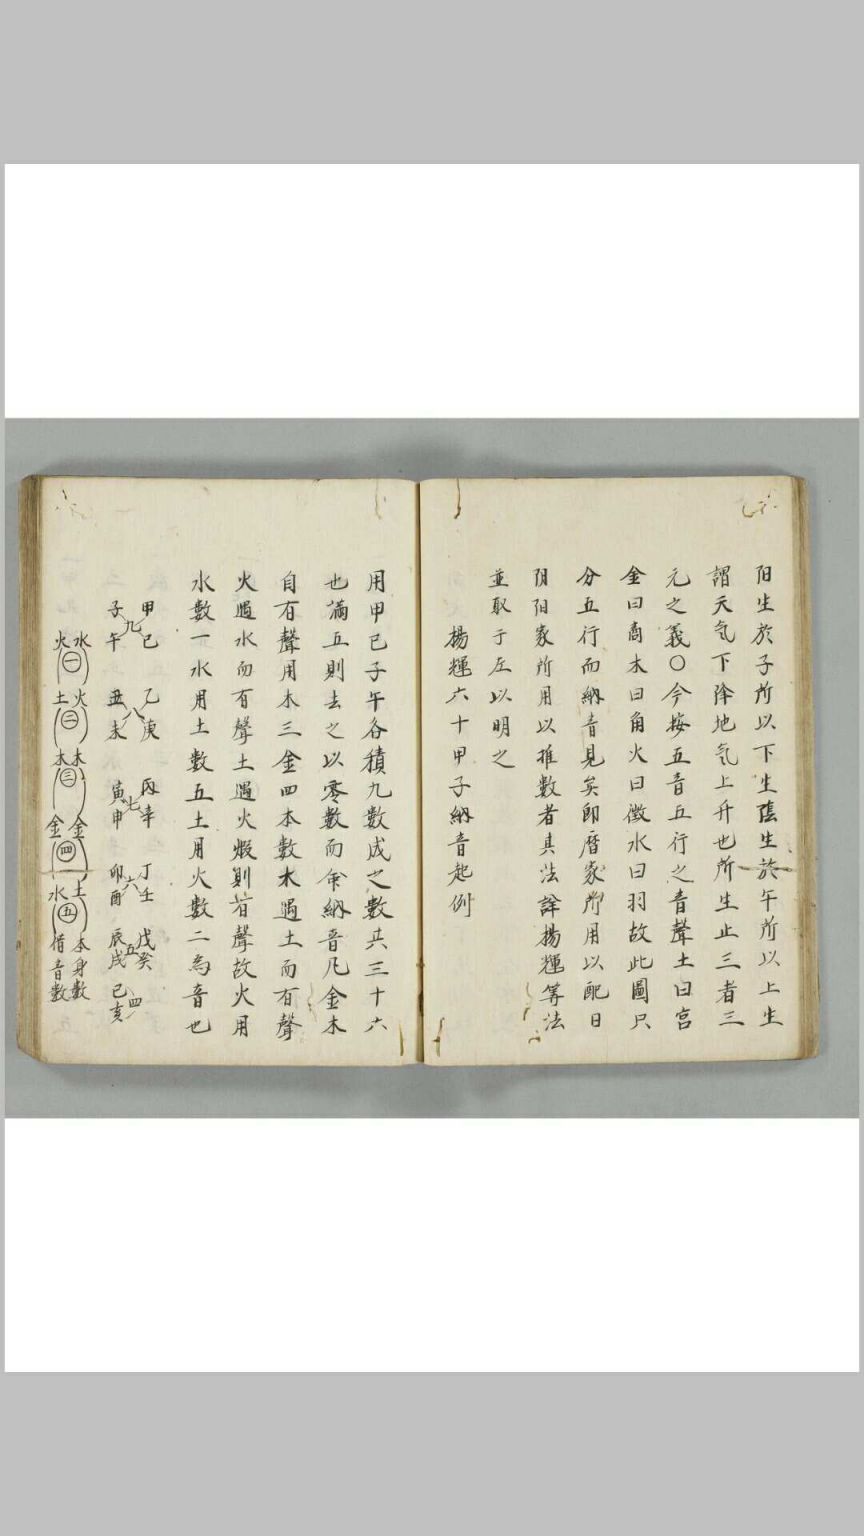 阳生於子所以下生隂生於午所以上生
謂天気下降地気上升也所生止三者三
元之義〇今按五音五行之音聲土曰宮
金曰商木曰角火曰徴水曰羽故此圖只
分五行而納音見矣即暦家所用以配日
阴阳家所用以推數者其法詳楊輝等法
並取于左以明之
楊輝六十甲子納音起例
用甲己子午各積九數成之數共三十六
也滿五則去之以零數而作納音凡金木
自有聲用木三金四本數水遇土而有聲
火遇水而有聲土遇火煅則有聲故火用
水數一水用土數五土用火數二為音也
甲己 乙庚 丙辛 丁壬 戊癸
九 八 七 六 五 四
子午 丑未 寅申 卯酉 辰戌 己亥
水 火 木 金 土 本身數
一 二 三 四 五
火 土 木 金 水 借音數